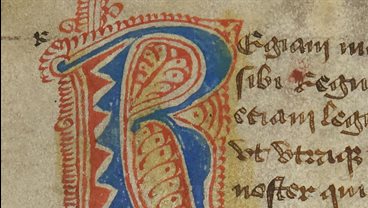 Regiam m
sibi regn
etiam leg
vt vtraque
noster qui